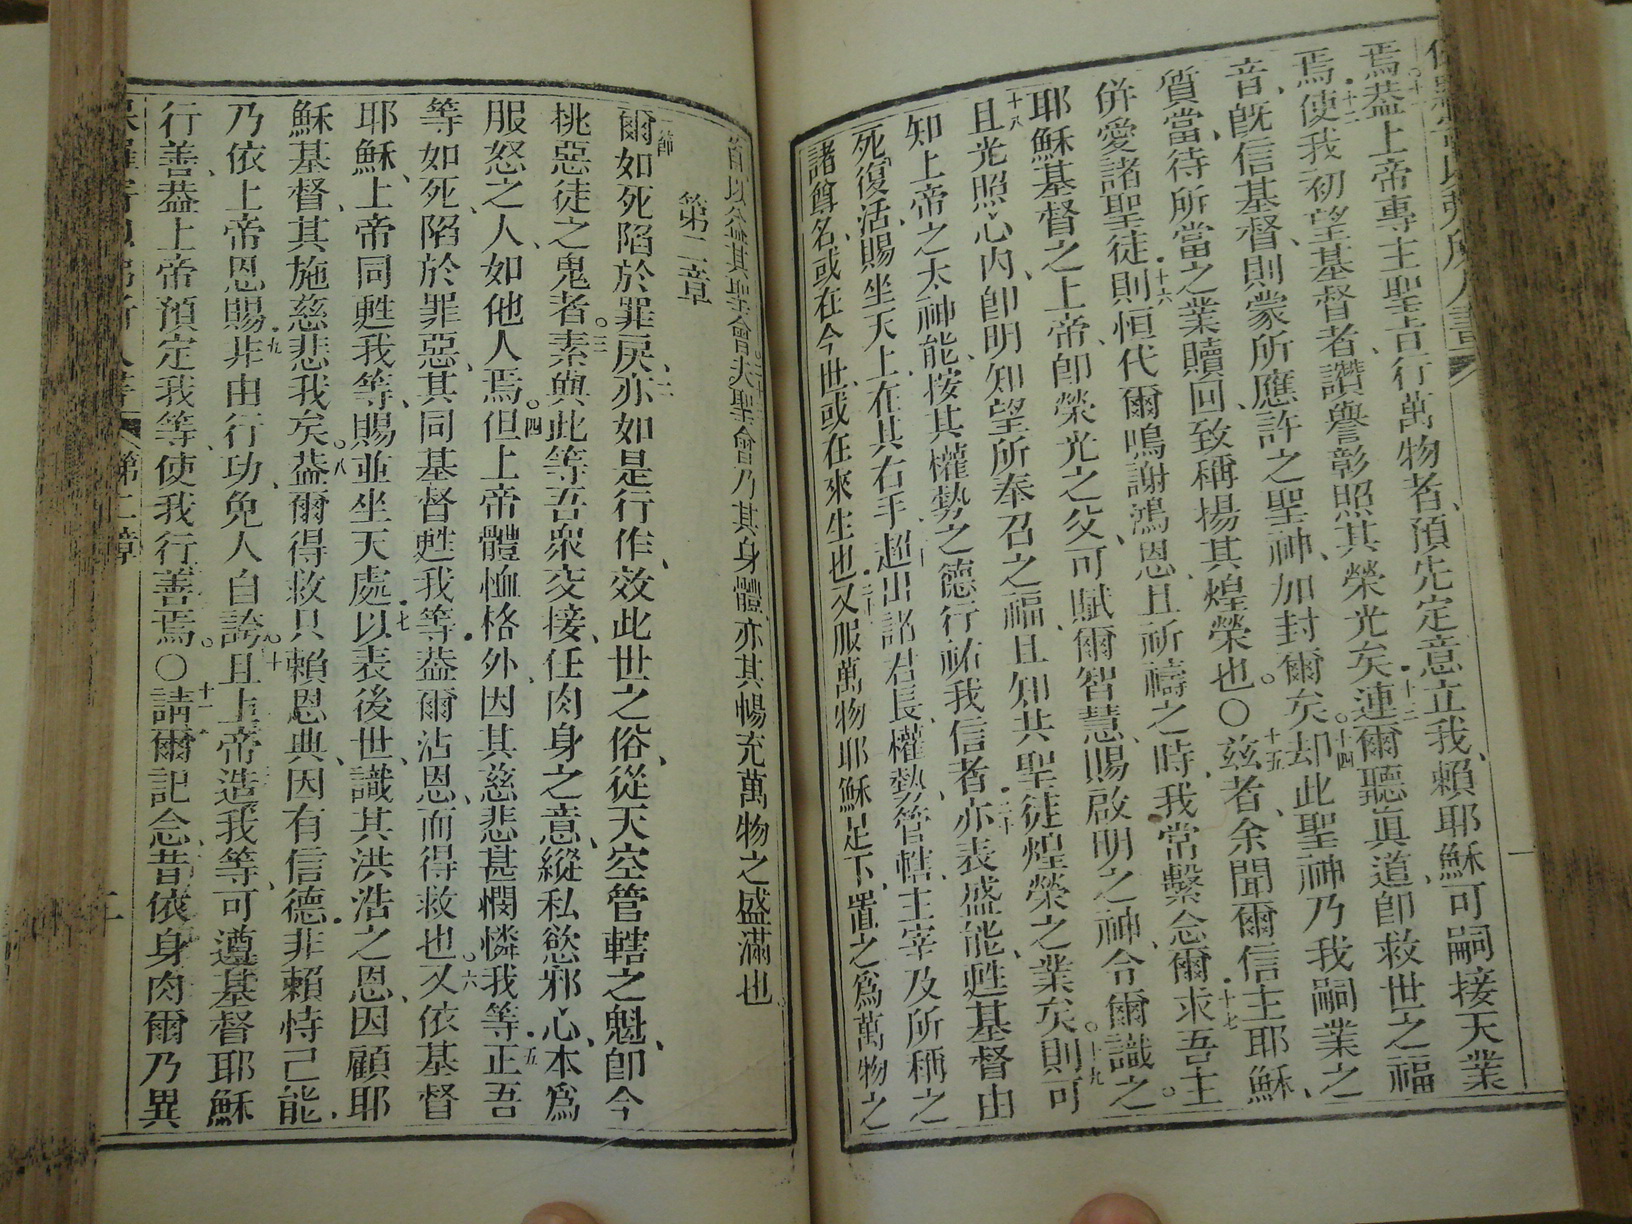 焉、蓋上帝專主聖旨行萬物者、預先定意立我、賴耶穌可嗣接天業
焉。十二使我初望基督者、讚譽彰照其榮光矣。十三連爾聽眞道、卽救世之福
音、旣信基督、則蒙所應許之聖神、加封爾矣。十四却此聖神乃我嗣業之
質當、待所當之業贖回、致稱揚其煌榮也。〇十五茲者、余聞爾信主耶穌、
倂愛諸聖徒、十六則恒代爾鳴謝鴻恩、且祈禱之時、我常繫念爾。十七求吾主
耶穌基督之上帝、卽榮光之父、可賦爾智慧、賜啟明之神、令爾識之。
十八且光照心內、卽明知望所奉召之福、且知共聖徒煌榮之業矣。十九則可
知上帝之大神能、按其權勢之德行祐我信者。二十亦表盛能、甦基督由
死復活、賜坐天上在其右手、超出諸君長、權勢、管轄、主宰、及所稱之
諸尊名、或在今世、或在來生也。又服萬物耶穌足下、置之爲萬物之
首、以益其聖會。夫聖會乃其身體、亦其暢充萬物之盛滿也
第二章
一節爾如死陷於罪戾、二亦如是行作、效此世之俗、從天空管轄之魁、卽今
挑惡徒之鬼者。三素與此等吾衆交接、任肉身之意、縱私慾邪心、本爲
服怒之人、如他人焉。四但上帝體恤格外、因其慈悲甚憫憐我等。五正吾
等如死、陷於罪惡、其同基督甦我等、蓋爾沾恩、而得救也。六又依基督
耶穌、上帝同甦我等、賜並坐天處。七以表後世、識其洪浩之恩、因顧耶
穌基督、其施慈悲我矣。八蓋爾得救、只賴恩典、因有信德、非賴恃己能、
乃依上帝恩賜。九非由行功、免人自誇。十且上帝造我等、可遵基督耶穌
行善、蓋上帝預定我等、使我行善焉。〇十一請爾記念、昔依身肉、爾乃異
第二章
一
二